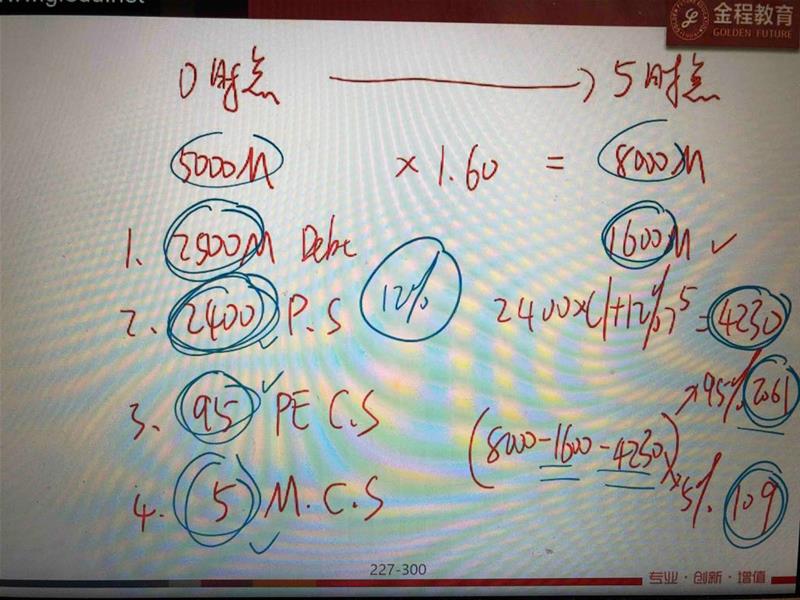 金程教育
GOLDEN FUTURE
0时点 → 5时点
5000M × 1.60 = 8000M
1. 2500M Debt 1600M ✓
2. 2400 ✓ P.S 12% 2400×(1+12%)^5 = 4230
3. 95 ✓ PE C.S ×95% 2061
(8000-1600-4230)
4. 5 ✓ M.C.S ×5% 109
227-300
专业·创新·增值